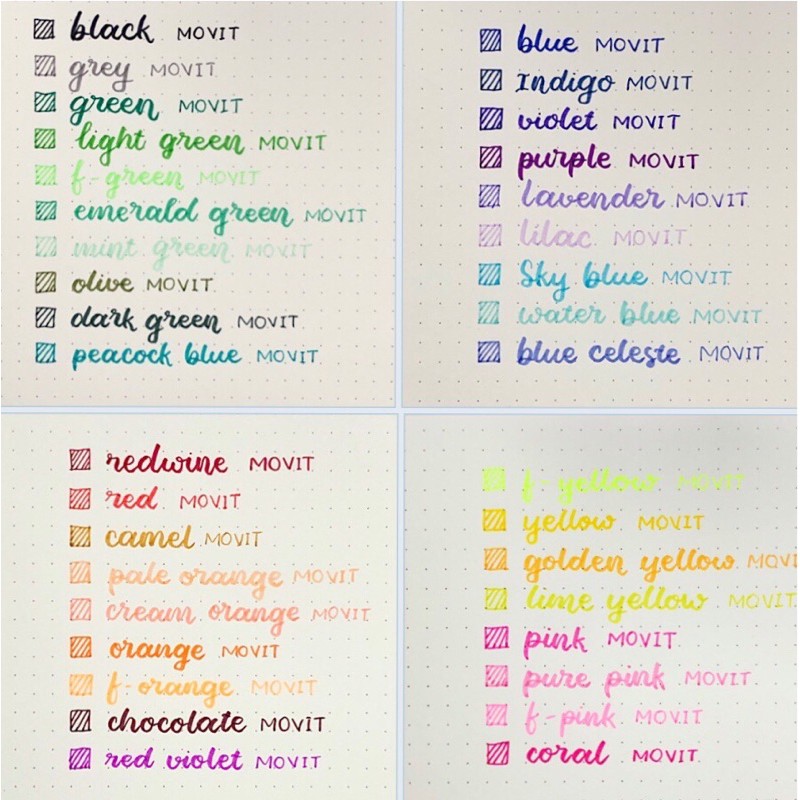 black MOVIT
grey MOVIT
green MOVIT
light green MOVIT
f-green MOVIT
emerald green MOVIT
mint green MOVIT
olive MOVIT
dark green MOVIT
peacock blue MOVIT
blue MOVIT
Indigo MOVIT
violet MOVIT
purple MOVIT
lavender MOVIT
lilac MOVIT
Sky blue MOVIT
water blue MOVIT
blue celeste MOVIT
redwine MOVIT
red MOVIT
camel MOVIT
pale orange MOVIT
cream orange MOVIT
orange MOVIT
f-orange MOVIT
chocolate MOVIT
red violet MOVIT
f-yellow MOVIT
yellow MOVIT
golden yellow MOVI
lime yellow MOVIT
pink MOVIT
pure pink MOVIT
f-pink MOVIT
coral MOVIT